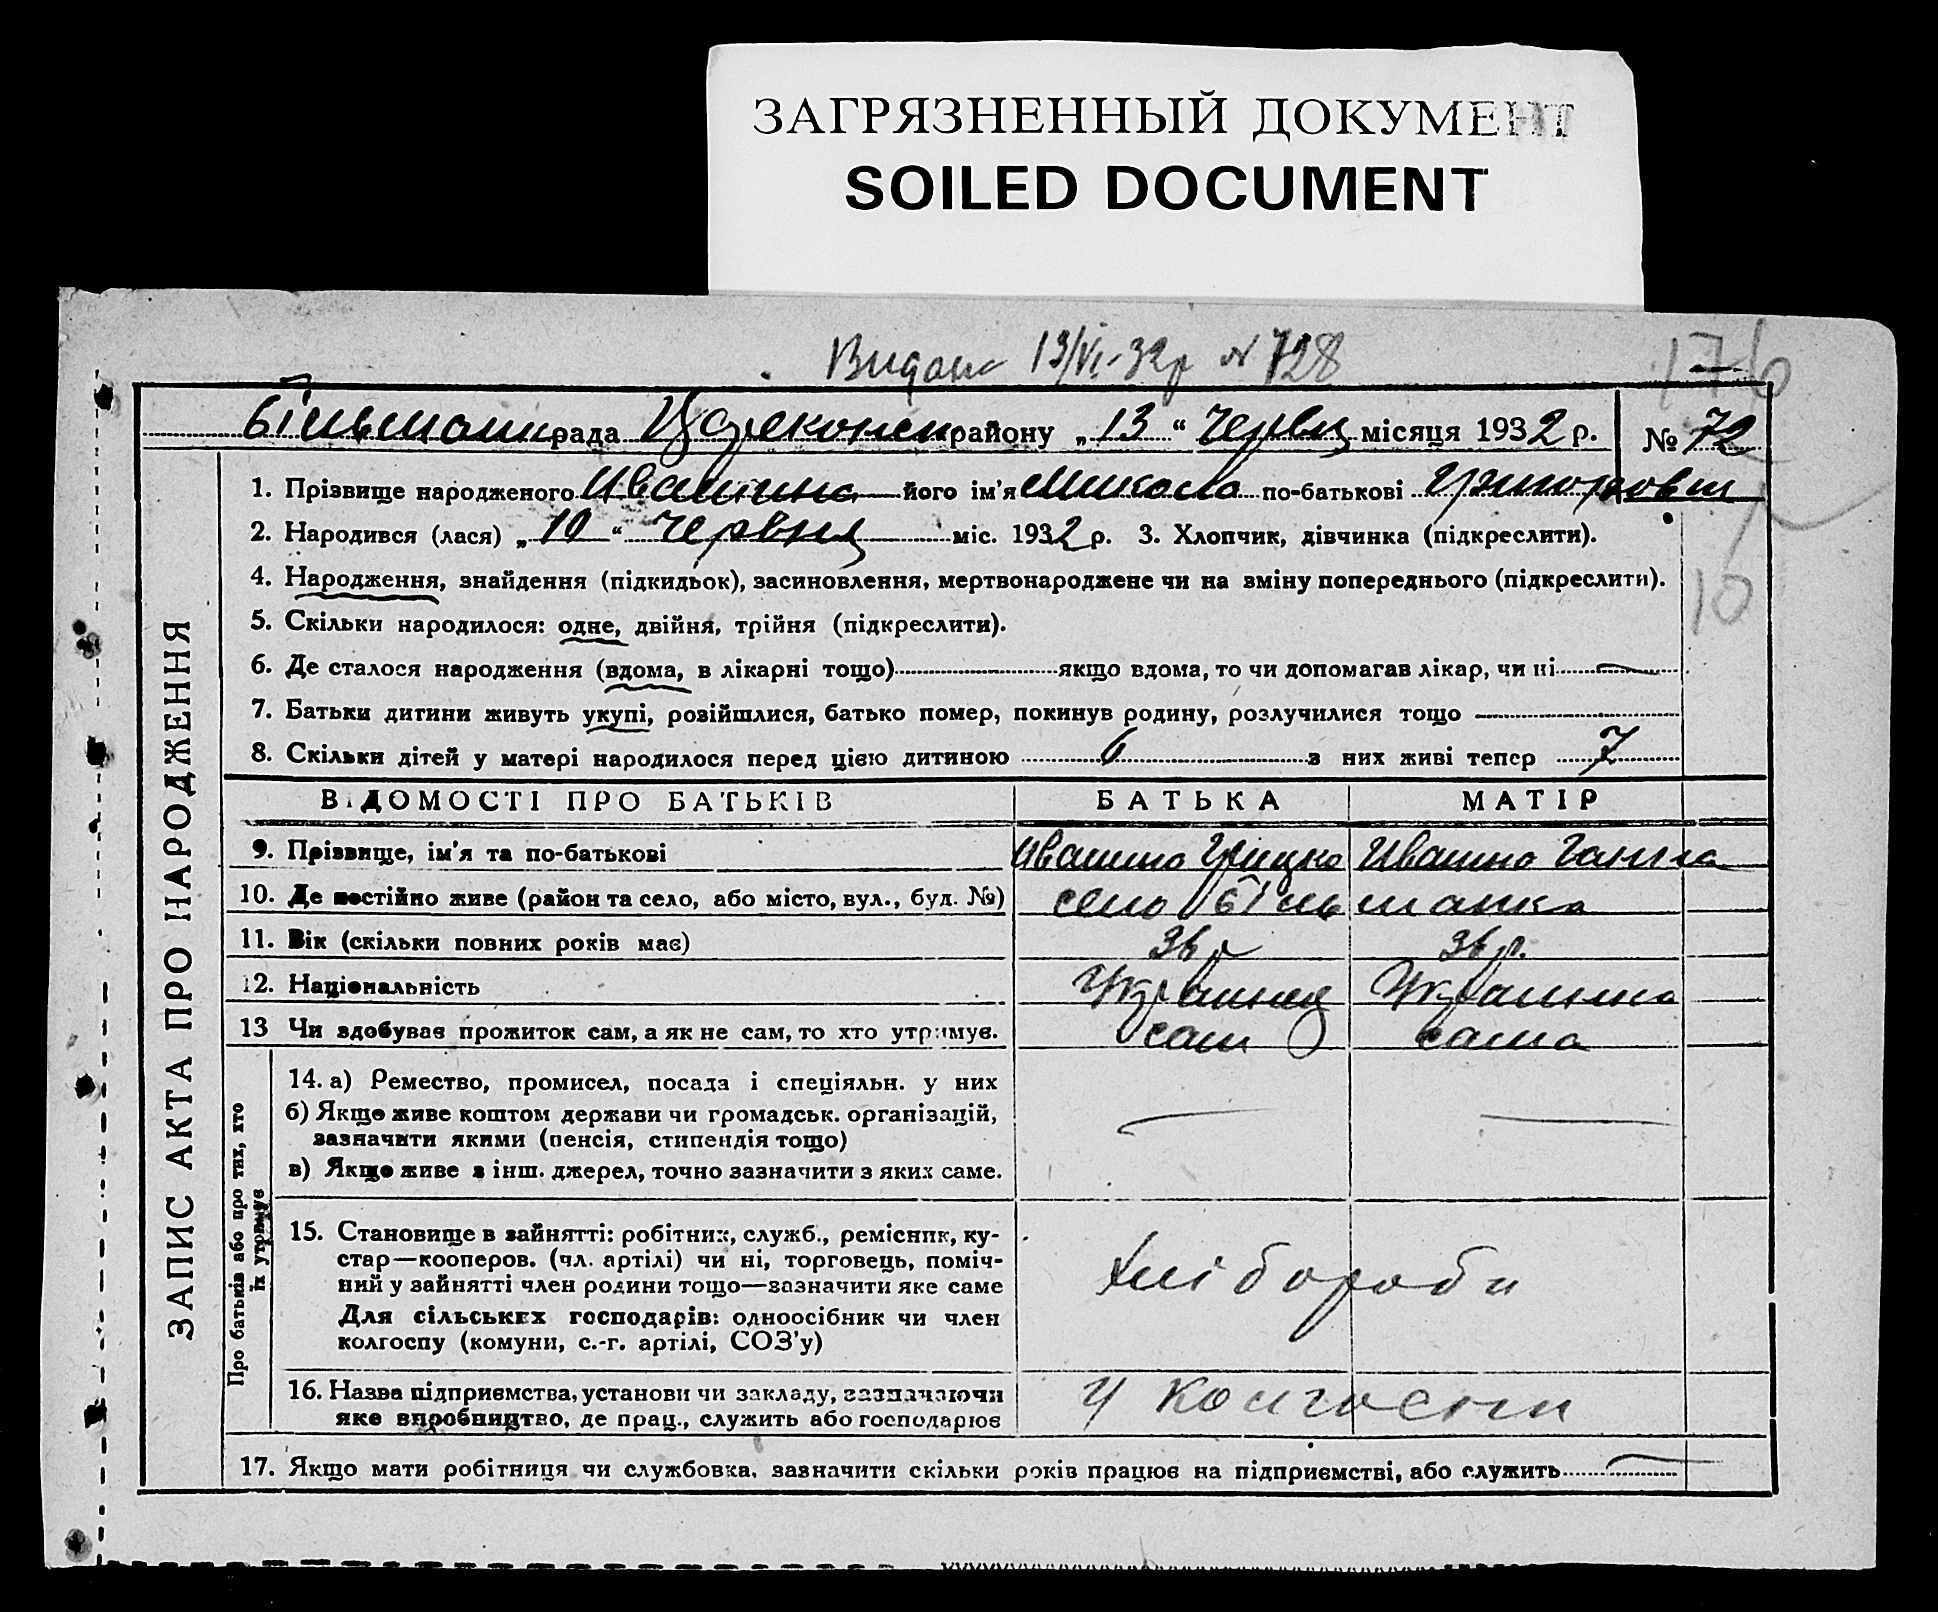 ЗАГРЯЗНЕННЫЙ ДОКУМЕНТ
SOILED DOCUMENT
Видано 13/VI-32р № 728
176
рада району „13“ червц місяця 1932 р. № 72
1. Прізвище народженого Ивашина його ім'я Микола по-батькові Григорович
2. Народився (лася) „10“ червня міс. 1932 р. 3. Хлопчик, дівчинка (підкреслити).
4. Народження, знайдення (підкидьок), засиновлення, мертвонароджене чи на зміну попереднього (підкреслити).
10
5. Скільки народилося: одне, двійня, трійня (підкреслити).
6. Де сталося народження (вдома, в лікарні тощо) якщо вдома, то чи допомагав лікар, чи ні —
7. Батьки дитини живуть укупі, розійшлися, батько помер, покинув родину, розлучилися тощо
8. Скільки дітей у матері народилося перед цією дитиною 6 з них живі тепер 7
ВІДОМОСТІ ПРО БАТЬКІВ БАТЬКА МАТІР
9. Прізвище, ім'я та по-батькові Ивашина Грицко Ивашина Ганна
10. Де постійно живе (район та село, або місто, вул., буд. №) село
11. Вік (скільки повних років має) 36 р 36 р.
12. Національність Українец Українка
13 Чи здобуває прожиток сам, а як не сам, то хто утримує. сам сама
14. а) Ремество, промисел, посада і спеціяльн. у них
б) Якщо живе коштом держави чи громадськ. організацій,
зазначити якими (пенсія, стипендія тощо) — —
в) Якщо живе з інш. джерел, точно зазначити з яких саме.
15. Становище в зайнятті: робітник, служб., ремісник, ку-
стар—кооперов. (чл. артілі) чи ні, торговець, поміч-
ний у зайнятті член родини тощо—зазначити яке саме
Для сільських господарів: одноосібник чи член
колгоспу (комуни, с.-г. артілі, СОЗ'у)
хлібороби
16. Назва підприємства, установи чи закладу, зазначаючи
яке виробництво, де прац., служить або господарює
у колгоспи
17. Якщо мати робітниця чи службовка, зазначити скільки років працює на підприємстві, або служить —
ЗАПИС АКТА ПРО НАРОДЖЕННЯ
Про батьків або про тих, хто
їх утримує